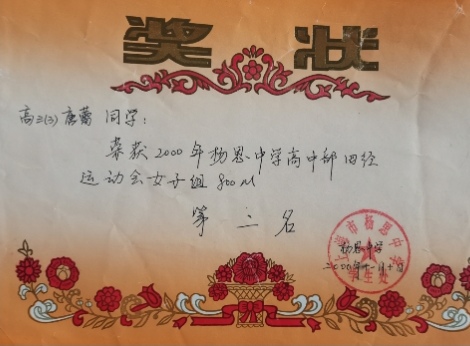 奖状
高三(3) 唐蕾 同学:
荣获2000年杨思中学高中部田径
运动会女子组 800M
第三名
杨思中学
二000年十一月十日
上海市杨思中学